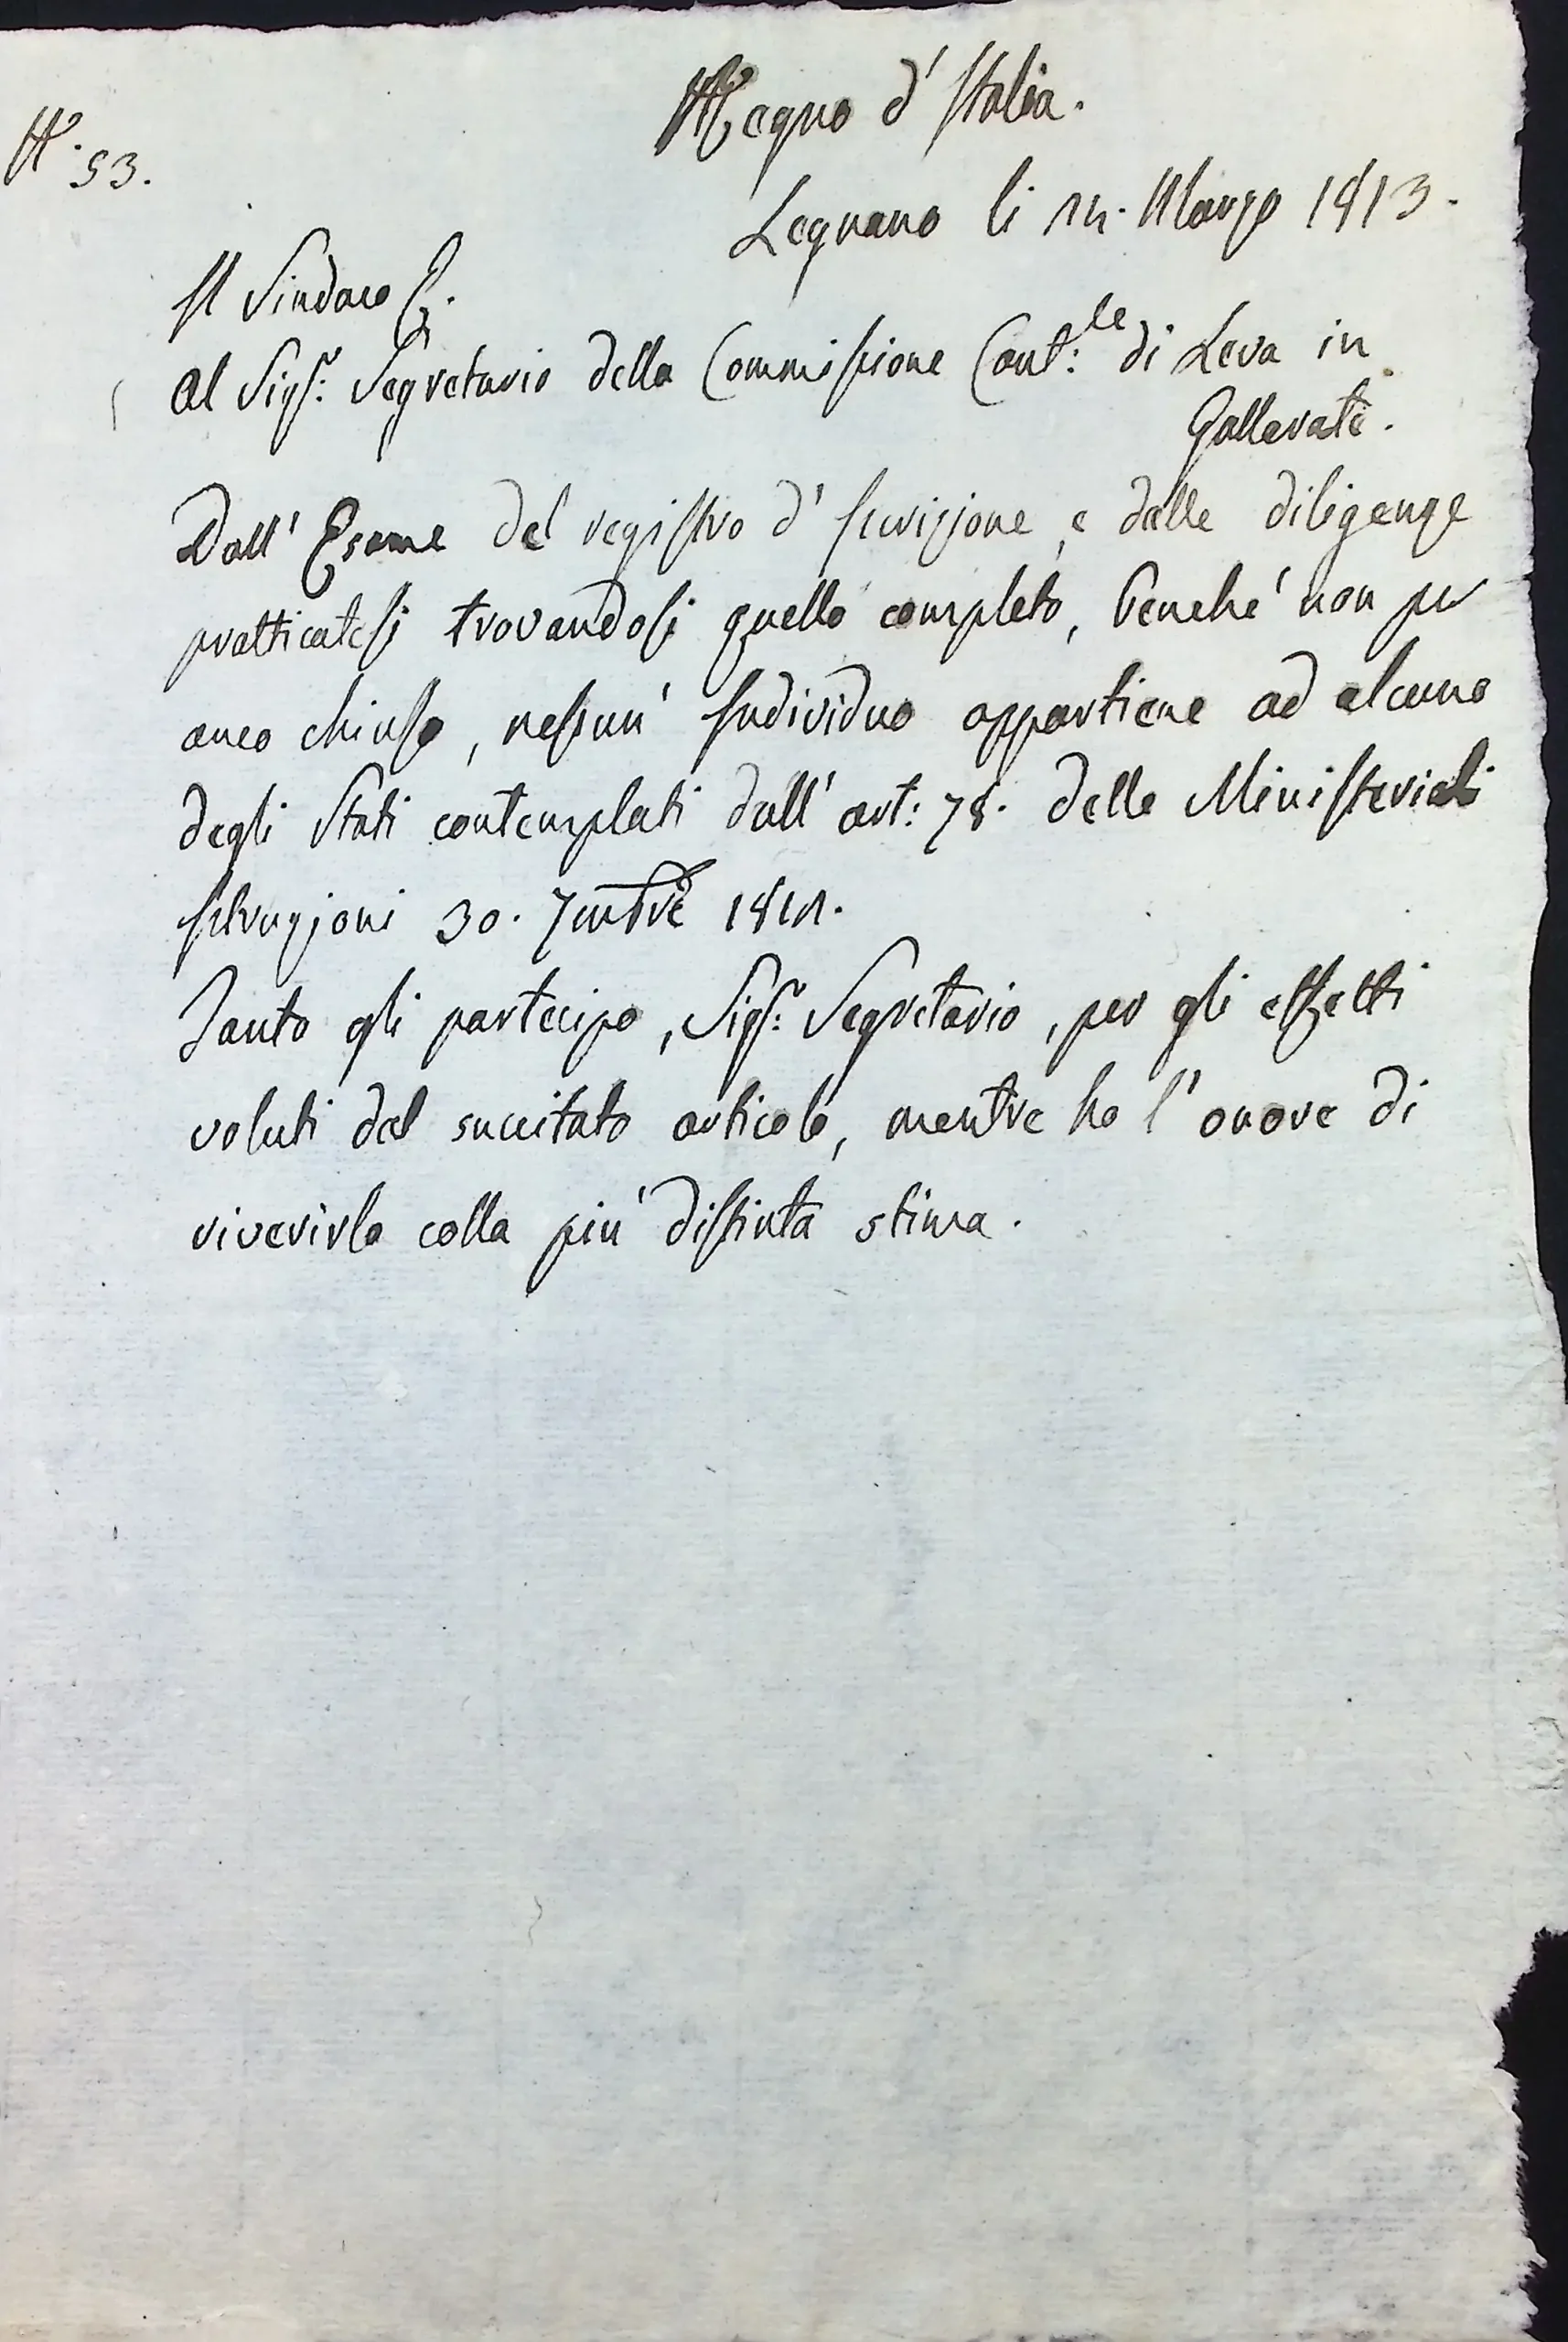 Regno d'Italia.
N.° 53.
Legnano li 14. Marzo 1813.
Il Sindaco
Al Sigr: Segretario della Commissione Cant:le di Leva in
Gallarate.
Dall' Esame del registro d' Iscrizione, e dalle diligenze
pratticatesi trovandosi quello completo, benche' non per
anco chiuso, nessun' Individuo appartiene ad alcuno
degli Stati contemplati dall' art: 78. delle Ministeriali
Istruzioni 30. 7mbre 1811.
Tanto gli partecipo, Sigr: Segretario, per gli effetti
voluti dal succitato articolo, mentre ho l' onore di
riverirla colla piu' distinta stima.